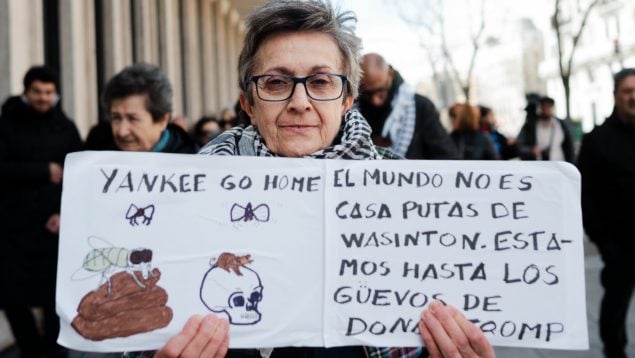 YANKEE GO HOME
EL MUNDO NO ES
CASA PUTAS DE
WASINTON. ESTA-
MOS HASTA LOS
GÜEVOS DE
TROMP